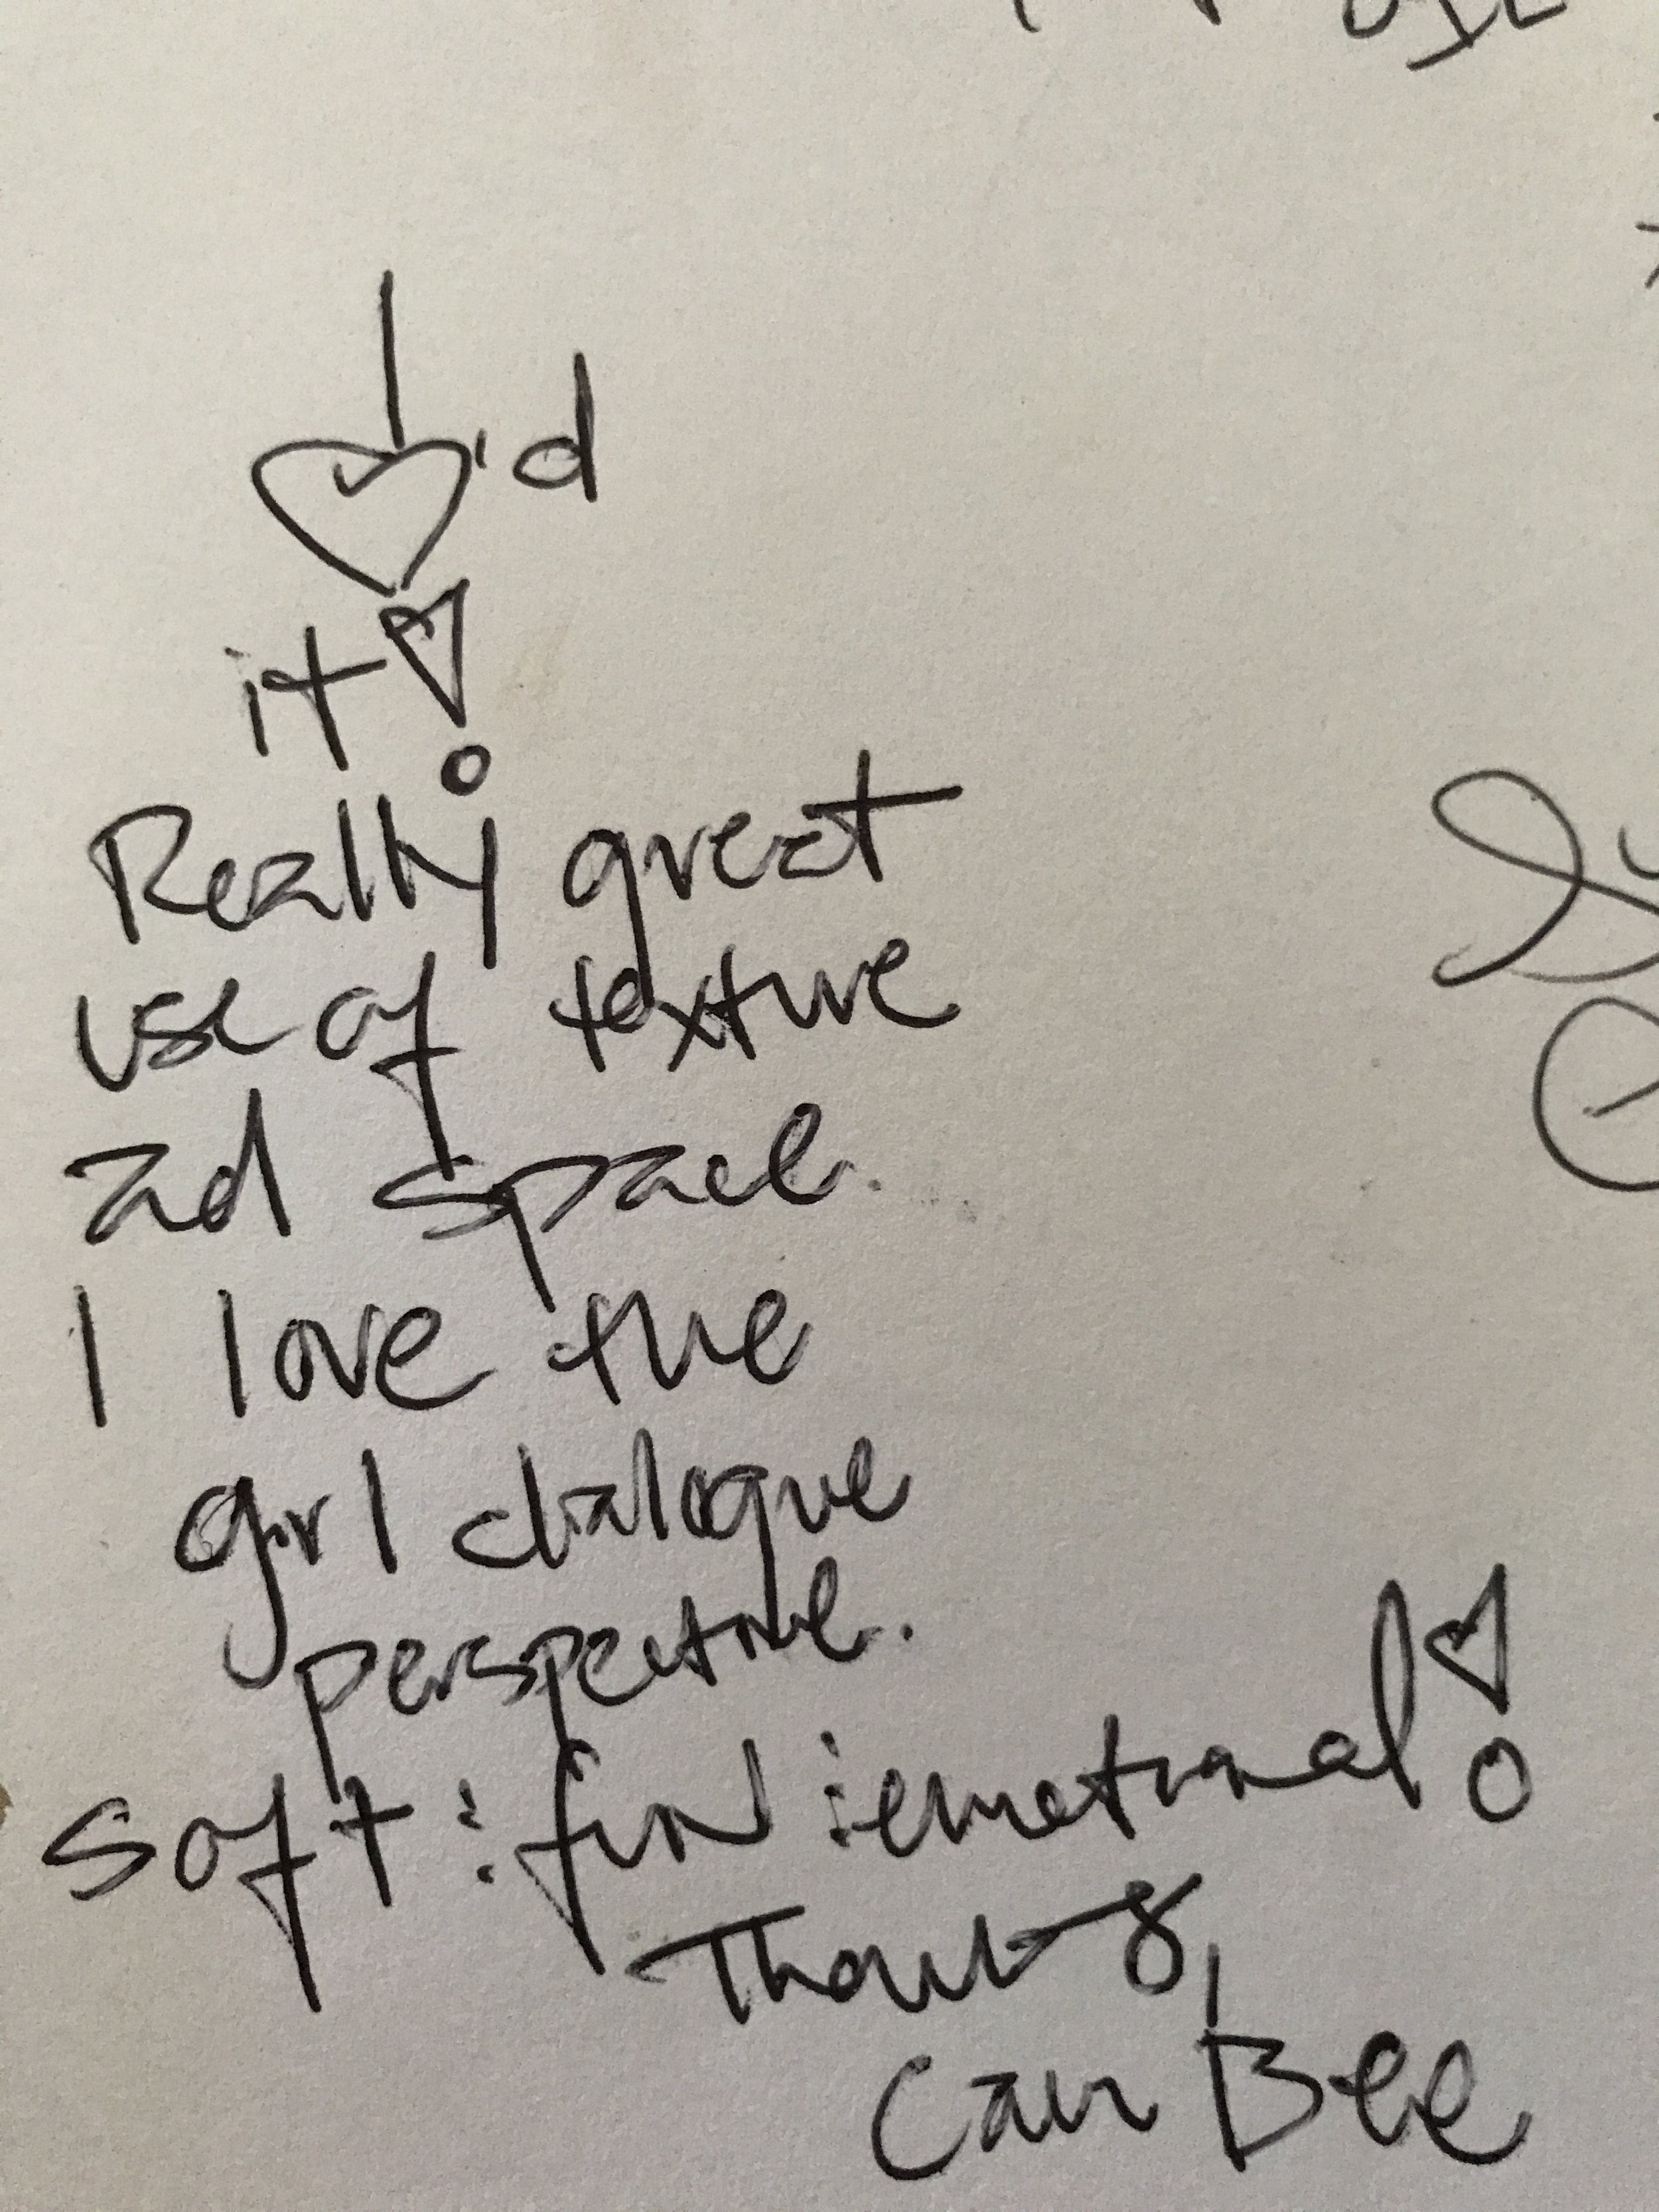 I
♡'d
it!
Really great
use of texture
ad space.
I love the
girl dialogue
perspective.
soft : fun : emotional!
Thanks,
Bee